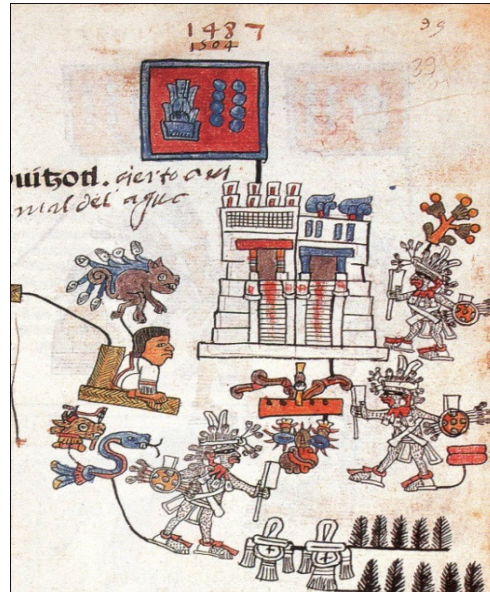 1487
1504
39
uitzotl. cierto ani
mal del agua